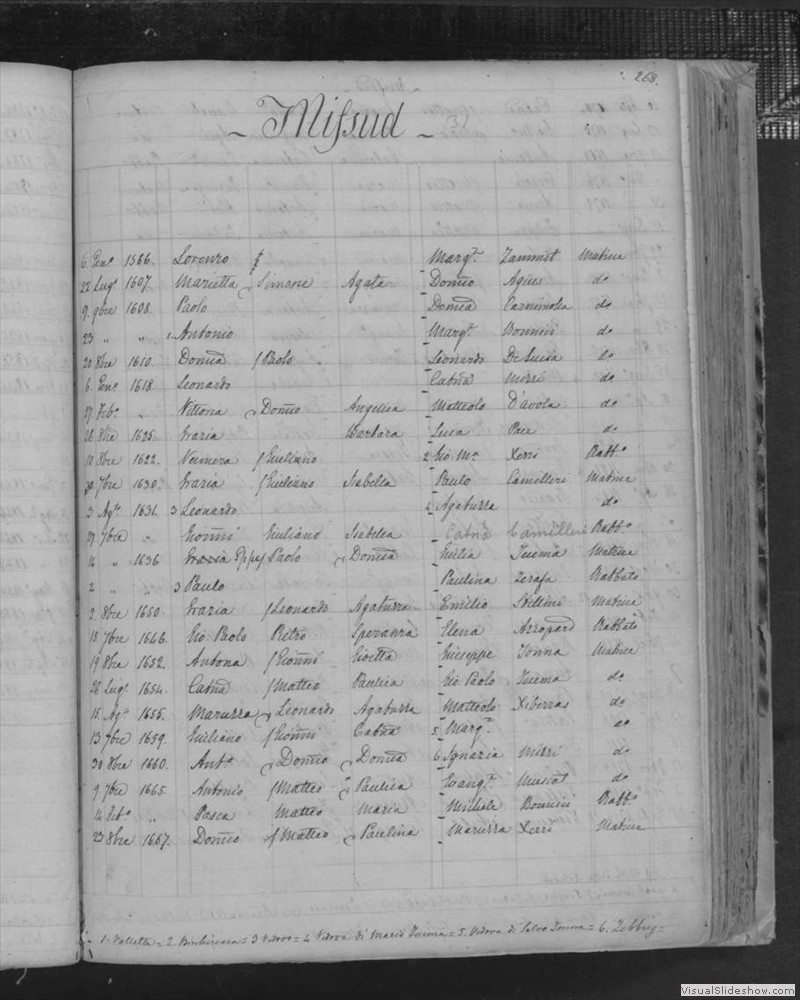 268.
- Missud -
6. Genº 1586. Lorenzo ƒ Margta. Zammit Matrice
22 Lugº 1607. Marietta Simone Agata Domco Agius do
9. 9bre 1608. Paolo Domca Do
23 „ „ 1. Antonio Margta. Bonnici do
20 8bre 1610. Domca ƒ Paolo Leonardo De Lucia do
6. Genº 1618. Leonardo Catna Mizzi do
27 Febº „ Vittoria Domco Angelica Matteolo D'avola do
28 8bre 1625. Grazia Barbara Luca Pace do
10 8bre 1622. Neumera ƒ Giuliano 2 Gio Ma. Xerri Rabbº
30 7bre 1630. Grazia ƒ Giuliano Isabella Paulo Camilleri Matrice
3 Agº 1631. 3 Leonardo 4 Agatuzza do
27 7bre „ Gioñni Giuliano Isabella Catna Camilleri Rabbº
14 „ 1636 Paolo Domca Giulia Tuema Matrice
2 „ „ 3 Paulo Paulina Zerafa Rabbato
2. 8bre 1650. Grazia ƒ Leonardo Agatuzza Emilio Matrice
15. 7bre 1646. Gio Paolo Pietro Speranza Elena Azzopard Rabbato
19 8bre 1652. Antona ƒ Gioñni Gioetta Giuseppe Tonna Matrice
28 Lugº. 1654. Catna ƒ Matteo Paulica Gio Paolo Tuema do
15. Agº 1655. Maruzza Leonardo Agatuzza Matteolo Xiberras do
13. 7bre 1659. Giuliano ƒ Gioñni Catna 5 Margta. do
30 8bre 1660. Antº. Domco Domca 6 Ignazia Mizzi do
9. 7bre 1665. Antonio ƒ Matteo Paulica Evangta. Muscat do
14 Febº „ Pasca Matteo Maria Michele Bonnici Rabbº
23 8bre 1667. Domco ƒ Matteo Paulina Maruzza Xerri Matrice
1. Valletta = 2. Birchircara = 3 Vedovo = 4 Vedova di Mario Tuema = 5. Vedova di Salvo Tonna = 6. Zebbug =
VisualSlideshow.com